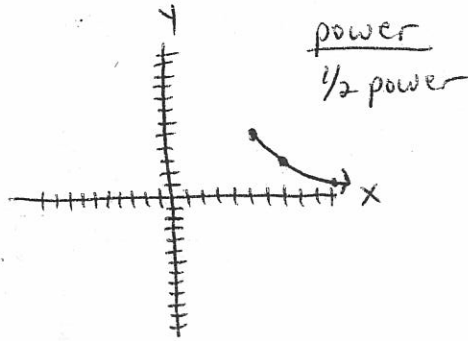 Y
power
1/2 power
X